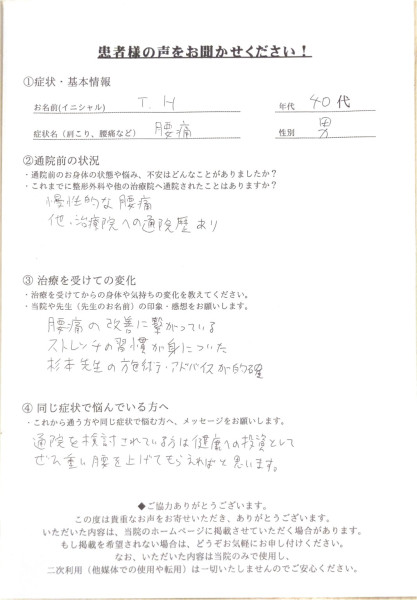 患者様の声をお聞かせください！
①症状・基本情報
お名前(イニシャル) T.H 年代 40代
症状名（肩こり、腰痛など） 腰痛 性別 男
②通院前の状況
・通院前のお身体の状態や悩み、不安はどんなことがありましたか？
・これまでに整形外科や他の治療院へ通院されたことはありますか？
慢性的な腰痛
他・治療院への通院歴あり
③ 治療を受けての変化
・治療を受けてからの身体や気持ちの変化を教えてください。
・当院や先生（先生のお名前）の印象・感想をお願いします。
腰痛の改善に繋がっている
ストレッチの習慣が身についた
杉本先生の施術・アドバイスが的確
④ 同じ症状で悩んでいる方へ
・これから通う方や同じ症状で悩む方へ、メッセージをお願いします。
通院を検討されている方は健康への投資として
ぜひ重い腰を上げてもらえればと思います。
◆ご協力ありがとうございます。
この度は貴重なお声をお寄せいただき、ありがとうございます。
いただいた内容は、当院のホームページに掲載させていただく場合があります。
もし掲載を希望されない場合は、どうぞお気軽にお申し付けください。
なお、いただいた内容は当院のみで使用し、
二次利用（他媒体での使用や転用）は一切いたしませんのでご安心ください。